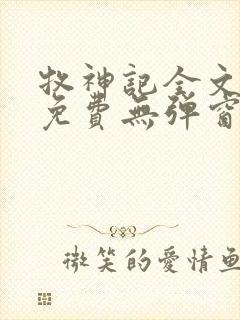 牧神記全文
免費無彈窗
微笑的愛情魚